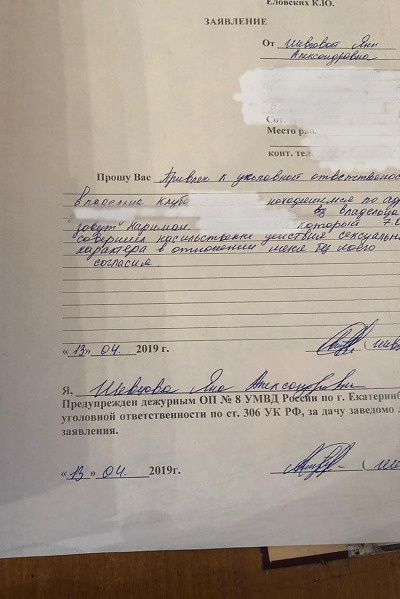 Еловских К.Ю.
ЗАЯВЛЕНИЕ
От Шевцовой Яны
Александровны
Сот.
Место раб.
конт. тел
Прошу Вас Привлеч к уголовной ответственнос
Владельца Клуба находишемся по ад
владельца
зовут Кариман. который
совершил насильственные действия сексуальн
характера в отношении меня без моего
согласия.
«13» 04. 2019 г.
Я, Шевцова Яна Александровна
Предупрежден дежурным ОП № 8 УМВД России по г. Екатеринб
уголовной ответственности по ст. 306 УК РФ, за дачу заведомо л
заявления.
«13» 04. 2019г.